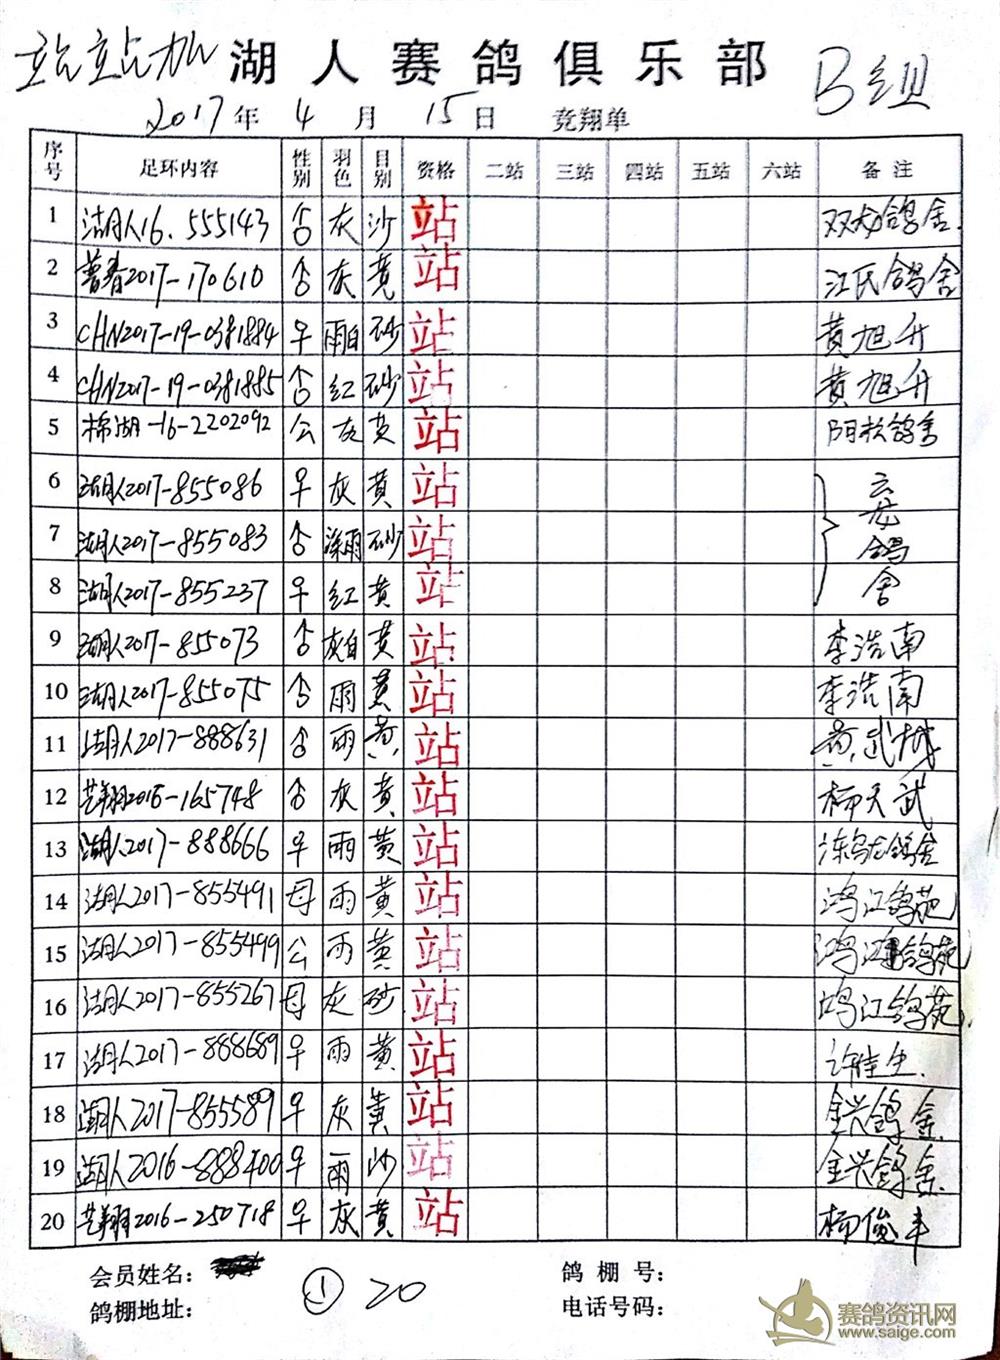 站站加 湖人赛鸽俱乐部 B组
2017年 4月 15日 竞翔单
序号 足环内容 性别 羽色 目别 资格 二站 三站 四站 五站 六站 备注
1 湖人16.555143 灰 沙 站 双龙鸽舍.
2 普春2017-170610 灰 黄 站 江氏鸽舍
3 CHN2017-19-0381884 ♀ 雨白 砂 站 黄旭升
4 CHN2017-19-0381885 红 砂 站 黄旭升
5 棉湖-16-2202092 公 灰 黄 站 阿松鸽舍
6 湖人2017-855086 ♀ 灰 黄 站
7 湖人2017-855083 深雨 砂 站 云龙鸽舍
8 湖人2017-855237 ♀ 红 黄 站
9 湖人2017-855073 灰白 黄 站 李浩南
10 湖人2017-855075 雨 黄 站 李浩南
11 湖人2017-888631 雨 黄 站 黄武城
12 艺翔2016-165748 灰 黄 站 柳天武
13 湖人2017-888666 ♀ 雨 黄 站 陈乌龙鸽舍
14 湖人2017-855491 母 雨 黄 站 鸿江鸽苑
15 湖人2017-855499 公 雨 黄 站 鸿江鸽苑
16 湖人2017-855267 母 灰 砂 站 鸿江鸽苑
17 湖人2017-888689 ♀ 雨 黄 站 许佳生.
18 湖人2017-855589 ♀ 灰 黄 站 金兴鸽舍
19 湖人2016-888400 ♀ 雨 沙 站 金兴鸽舍
20 艺翔2016-250718 ♀ 灰 黄 站 柳俊丰
会员姓名: 鸽棚号:
① 20
鸽棚地址: 电话号码:
赛鸽资讯网
www.saige.com